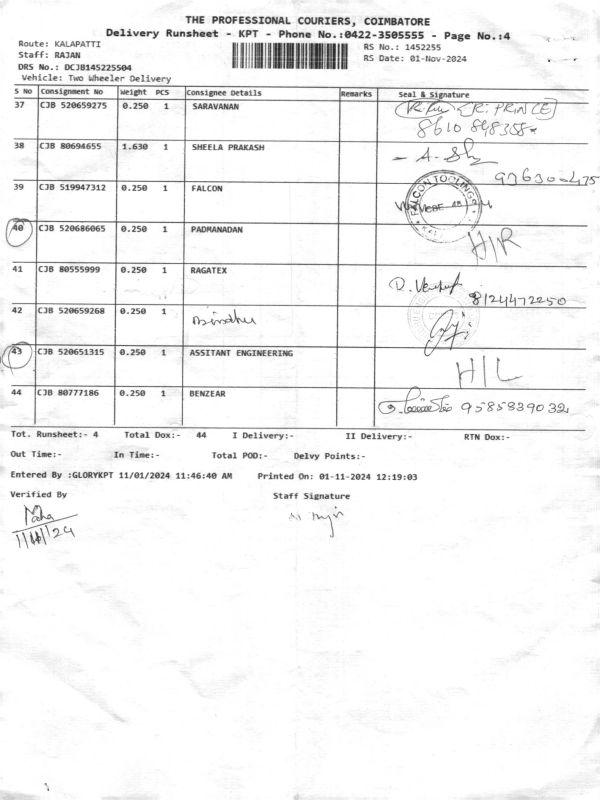 THE PROFESSIONAL COURIERS, COIMBATORE
Delivery Runsheet - KPT - Phone No.:0422-3505555 - Page No.:4
Route: KALAPATTI
RS No.: 1452255
Staff: RAJAN
RS Date: 01-Nov-2024
DRS No.: DCJB145225504
Vehicle: Two Wheeler Delivery
S No Consignment No Weight PCS Consignee Details Remarks Seal & Signature
37 CJB 520659275 0.250 1 SARAVANAN (R. PRINCE)
38 CJB 80694655 1.630 1 SHEELA PRAKASH
39 CJB 519947312 0.250 1 FALCON FALCON TOOLINGS
40 CJB 520686065 0.250 1 PADMANADAN
41 CJB 80555999 0.250 1 RAGATEX 8124472250
42 CJB 520659268 0.250 1
43 CJB 520651315 0.250 1 ASSITANT ENGINEERING H/L
44 CJB 80777186 0.250 1 BENZEAR 9585839032
Tot. Runsheet:- 4 Total Dox:- 44 I Delivery:- II Delivery:- RTN Dox:-
Out Time:- In Time:- Total POD:- Delvy Points:-
Entered By :GLORYKPT 11/01/2024 11:46:40 AM Printed On: 01-11-2024 12:19:03
Verified By Staff Signature